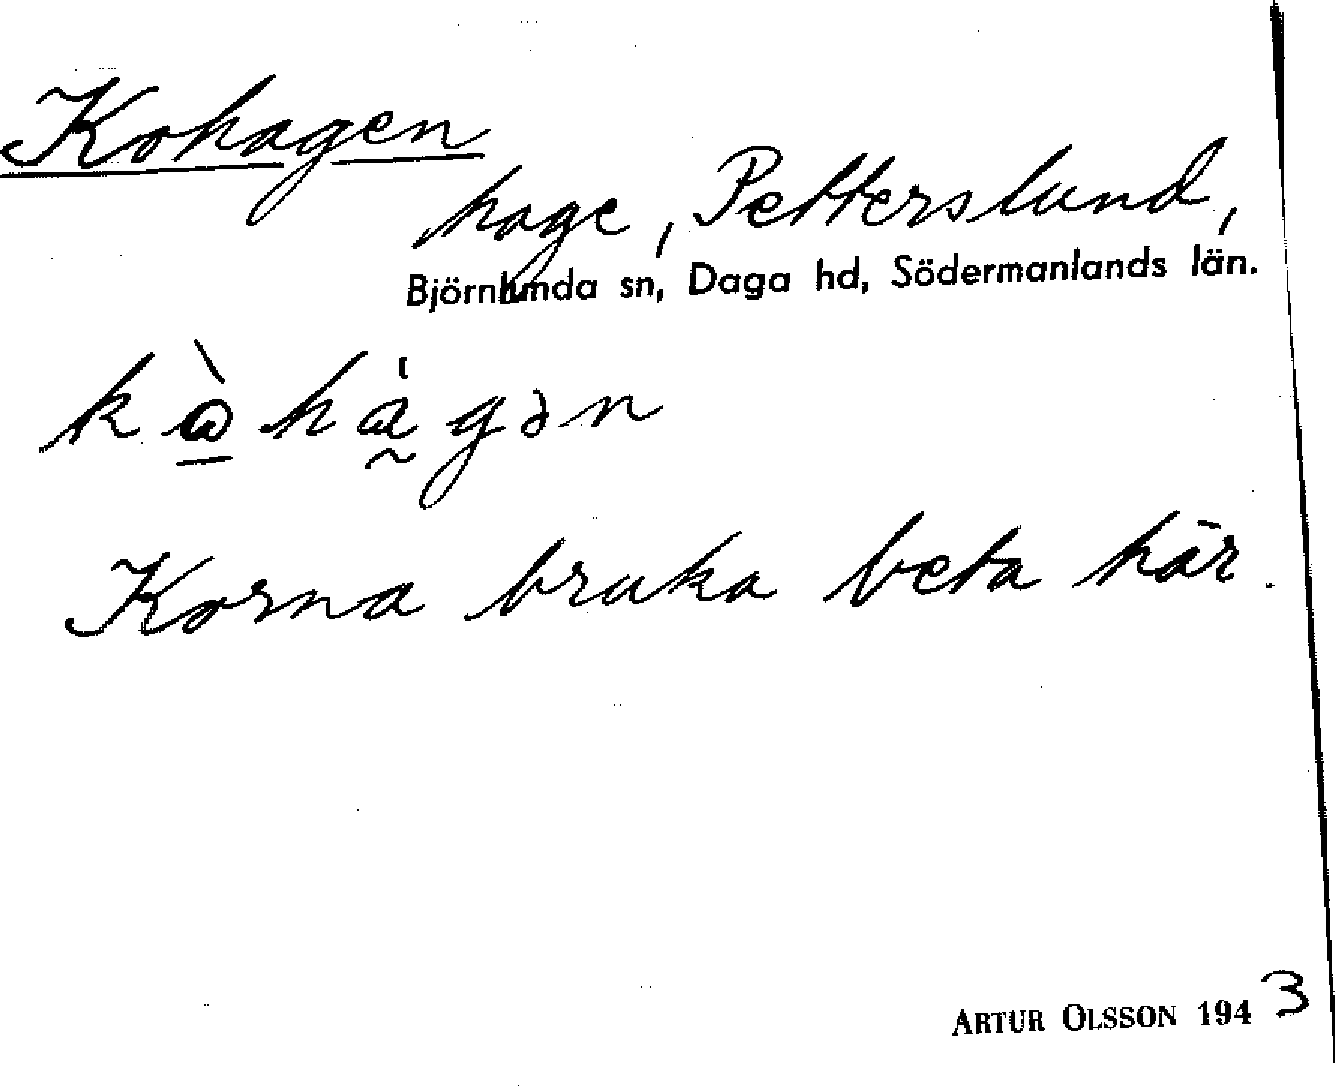 Kohagen
hage, Petterslund,
Björnlunda sn, Daga hd, Södermanlands län.
kὼhágən
Korna bruka beta här.
ARTUR OLSSON 1943